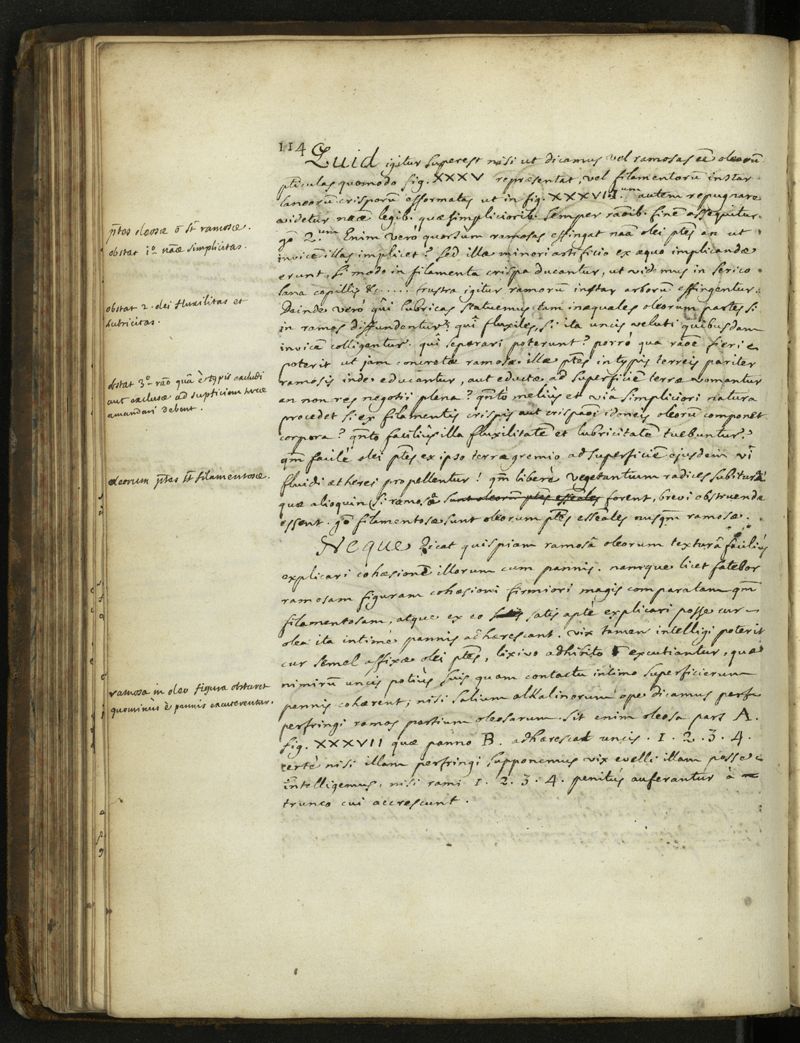 114
Quid igitur superest nisi ut dicamus vel ramosas eē oleorū
pticulas quomodo fig. XXXV repræsentat, vel filamentorū instar
laneorū crisporū efformatas ut in fig. XXXVI 1um autem repugnare
videtur naæ legib. quæ simpliciorib. semper raōib. finē assequitur.
gō 2.um Enim vero quorsum ramosas effingat naā olei ptes an ut
invicē illas implicet? sed illæ minori artificio ex æquo implicandæ
erunt, si modo in filamenta crispa ducantur, ut videmus in serico
lana capillis &c .... frustra igitur ramorū instar arborū effingentur.
Deinde vero qūi lubricas statuemus tam inæquales oleorum partes si
in ramos diffundentur? qūi fluxiles, si ita uncis veluti quibusdam
invicē colligentur. qūi seperari poterunt? porro qua raōe fieri
poterit ut jam concretæ ramosæ illæ ptes in typis terreis pariter
ramosis inde educantur, aut eductæ ad superficiē terræ vomantur
an non res negotii plena? qnto melius et viâ simpliciori natura
procedet si ex filamentis crispis aut crispaōi idoneis oleorū componet
corpora? qnto facilius illa fluxilitatē et lubricitatē tuebuntur?
qm facilè olei ptes ex ipso terræ gremio ad superficiē ejusdem vi
fluidi ætherei propellentur! qm liberè vegetantium radices subitura
quæ alioquin si ramosæ sunt oleorū ptes essēales forent, brevi obstruendæ
essent. gō filamentosæ sunt oleorum ptes essēales nusqm ramosæ.
Neque dicat quispiam ramosā oleorum texturā faciliùs
explicari cohæsionē illorum cum pannis. namque licet fatebor
ramosam figuram cohæsioni firmiori magis comparatam qm
filamentosam, atque ex eo satis aptè explicari posse cur
olea ita intimè pannis adhærescant. vix tamen intelligi poterit
cur semel affixæ olei ptes, lixivo adhibito excutiantur, quæ
nimirū uncis potius suis quam contactu intimo superficierum
pannis cohærent, nisi salium alkalinorum ope dicamus
perfringi ramos partium oleosarum. sit enim oleosa pars A.
fig. XXXVII quæ panno B. adhærescat uncis. 1. 2. 3. 4.
certè nisi illam perfringi supponemus vix evelli illam posse
intelligemus, nisi rami 1. 2. 3. 4. penitus auferantur à
trunco cui accrescunt.
ptes oleosæ ō st ramosæ.
obstat 1o. naæ simplicitas.
obstat 2. olei fluxilitas et
lubricitas.
obstat 3o. raō quâ è typis excludi
aut exclusæ ad superficiem terræ
amandari debent.
oleorum ptes st filamentosæ.
ramosa in oleo figura obstaret
quominus è pannis excuterentur.